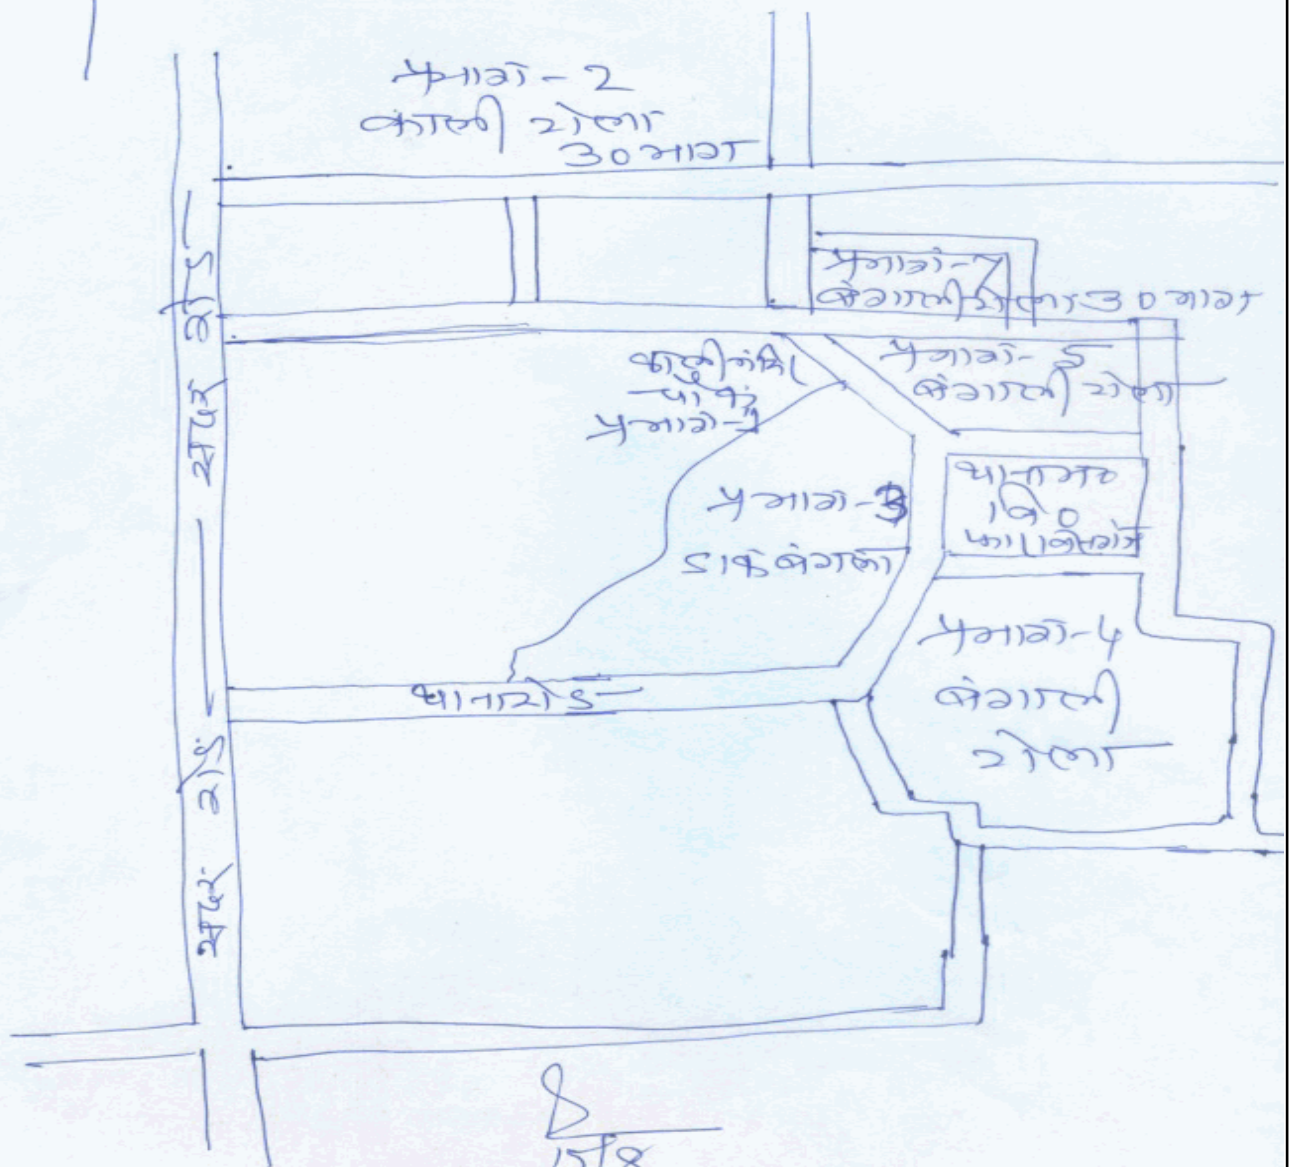 प्रभाग-2
काली टोला
उ० भाग
प्रभाग-7
बंगाली टोला उ० भाग
काली मंदिर
चौक
प्रभाग-1
प्रभाग-5
बंगाली टोला
प्रभाग-3
डाक बंगला
थाना म०
वि०
फारबिसगंज
प्रभाग-4
बंगाली
टोला
थाना रोड
सदर रोड
सदर रोड
15/8